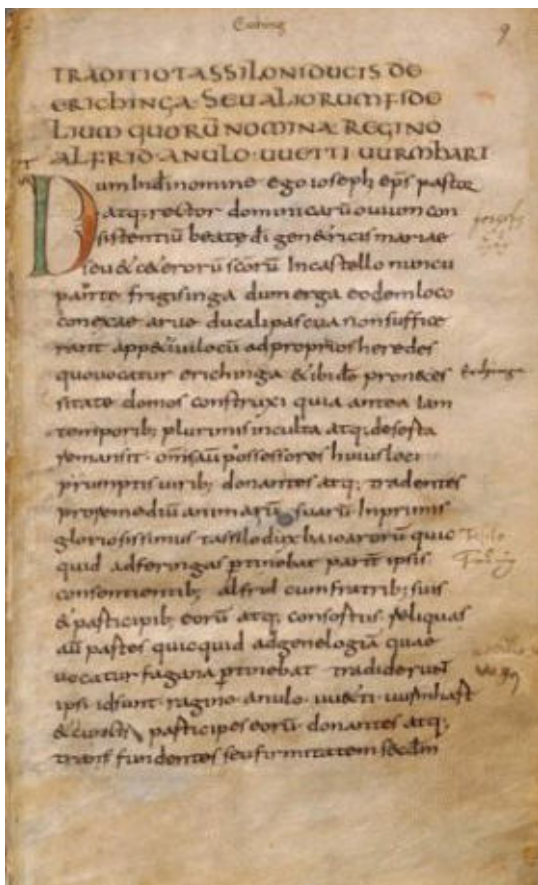 Eching
9
TRADITIO TASSILONI DUCIS DE
ERICHINGA SEU ALIORUM FIDE
LIUM QUORŪ NOMINA REGINO
ALFRID · ANULO · UUETTI UURMHARI
Dum in dī nomine ego ioseph epS pastor
atq; rector dominicarū ouium con
sistentiū beate dī genetricis mariae
seu & ceterorū scōrū In castello nuncu
pante frigisinga dum erga eodem loco
conexae arue ducali pascua non suffice
rant appetiui locū ad proprios heredes
quo uocatur erichinga & ibidē pro neces
Erchinga
sitate domos construxi quia antea iam
temporib; plurimis inculta atq; deserta
remansit · om̄s aū possessores huius loci
prūmptis uirib; donantes atq; tradentes
pro remediū animarū suarū Inprimis
gloriosissimus tassilo dux baioarorū quic
quid ad feringas ptinebat parit̄ ipsis
consentientib; alfrid cum fratrib; suis
& participib; eorū atq; consortiis reliquas
aū partes quicquid ad genelogiā quae
uocatur fagana ptinebat tradiderunt̄
ipsi id sunt · ragino · anulo · uuetti · uurmhart
& cuncti participes eorū donantes atq;
trans fundentes seu firmitatem